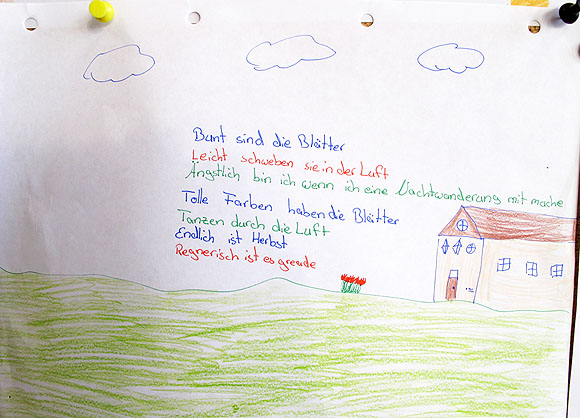 Bunt sind die Blätter
Leicht schweben sie in der Luft
Ängstlich bin ich wenn ich eine Nachtwanderung mit mache
Tolle Farben haben die Blätter
Tanzen durch die Luft
Endlich ist Herbst
Regnerisch ist es greude